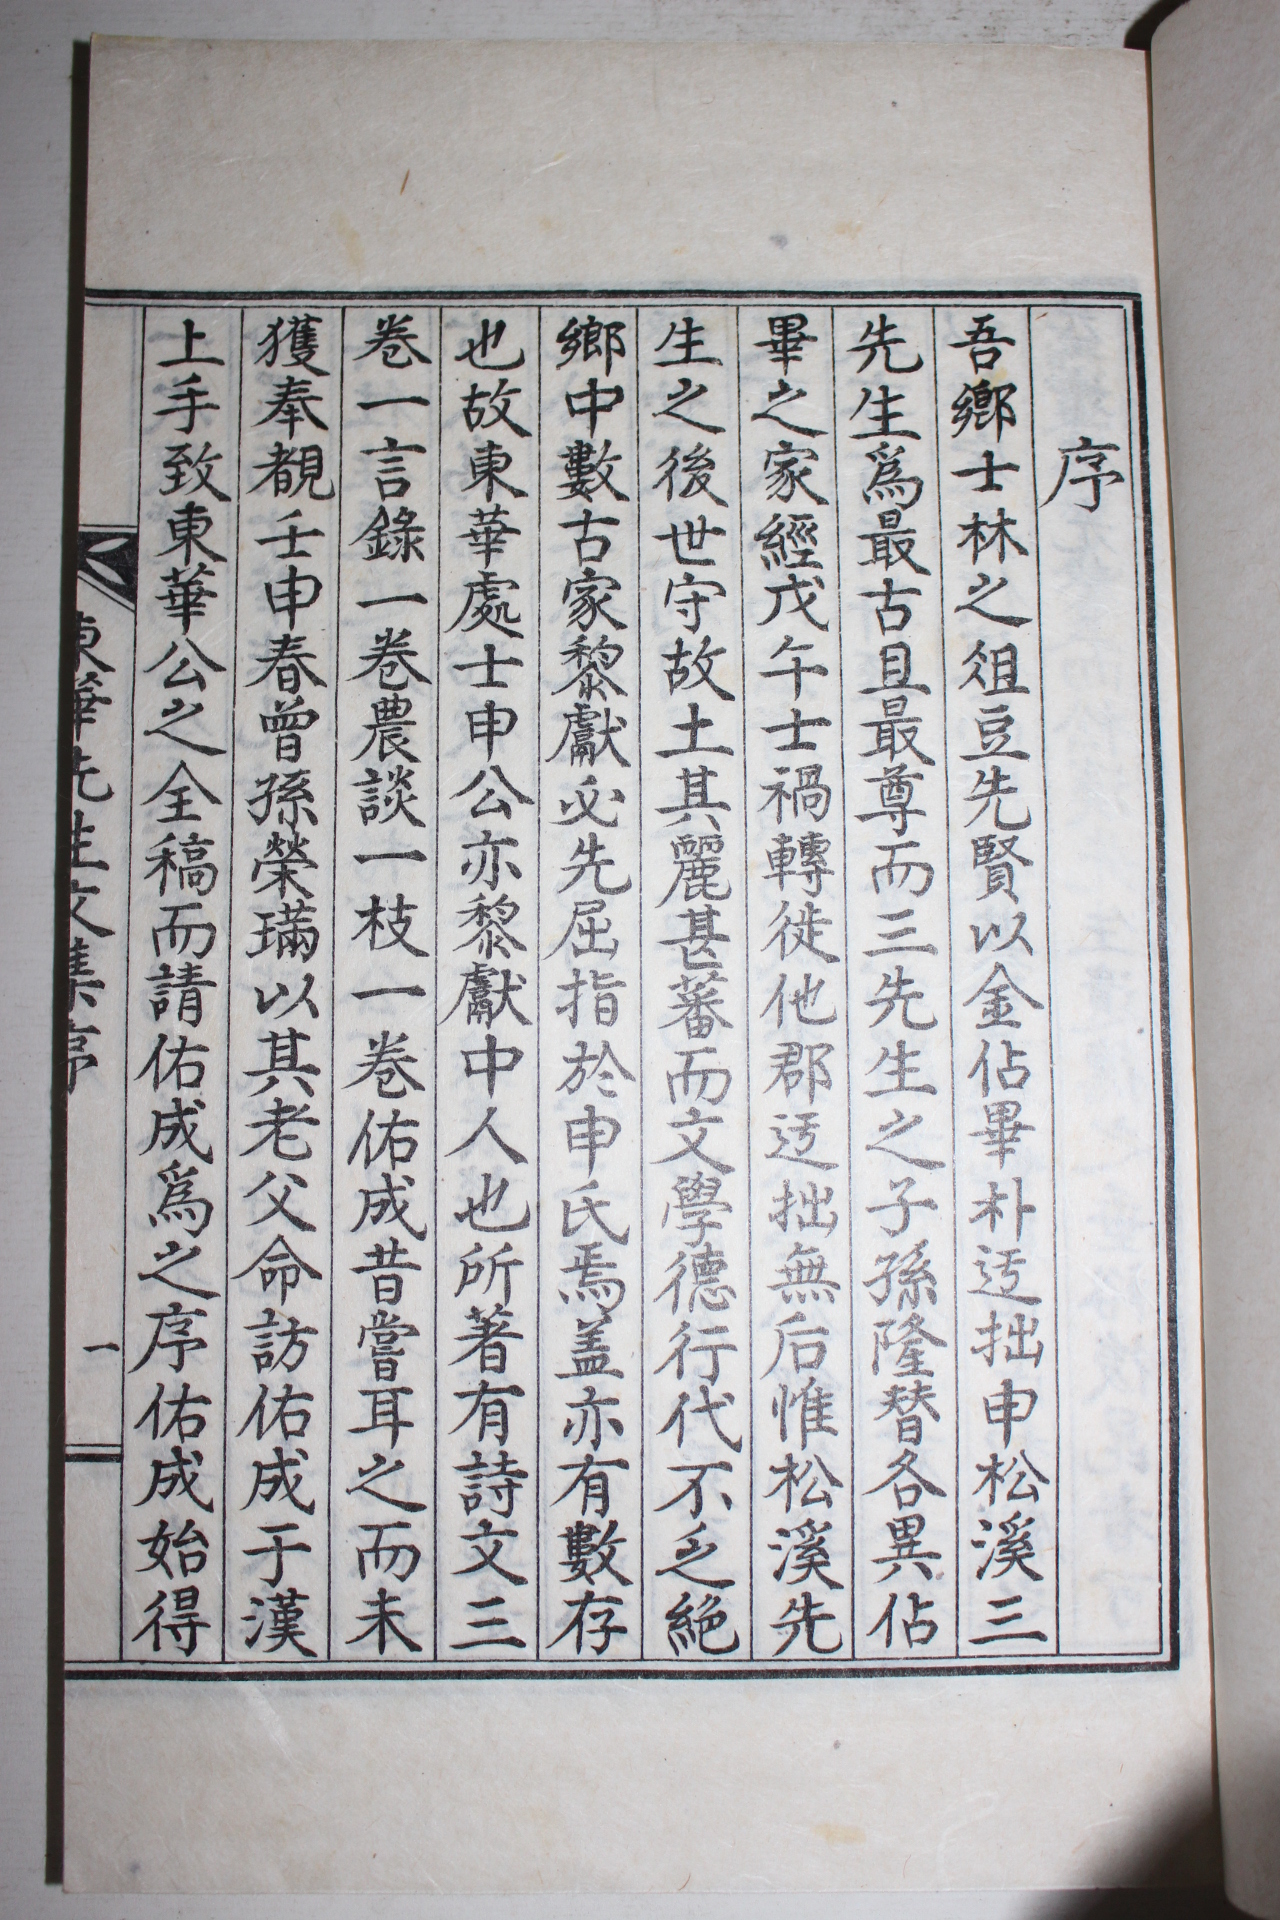 序
吾鄕士林之俎豆先賢以金佔畢朴迃拙申松溪三
先生爲最古且最尊而三先生之子孫隆替各異佔
畢之家經戊午士禍轉徙他郡迃拙無后惟松溪先
生之後世守故土其麗甚蕃而文學德行代不乏絶
鄕中數古家黎獻必先屈指於申氏焉盖亦有數存
也故東華處士申公亦黎獻中人也所著有詩文三
卷一言錄一卷農談一枝一卷佑成昔嘗耳之而未
獲奉覩壬申春曾孫榮璊以其老父命訪佑成于漢
上手致東華公之全稿而請佑成爲之序佑成始得
東華先生文集序
一